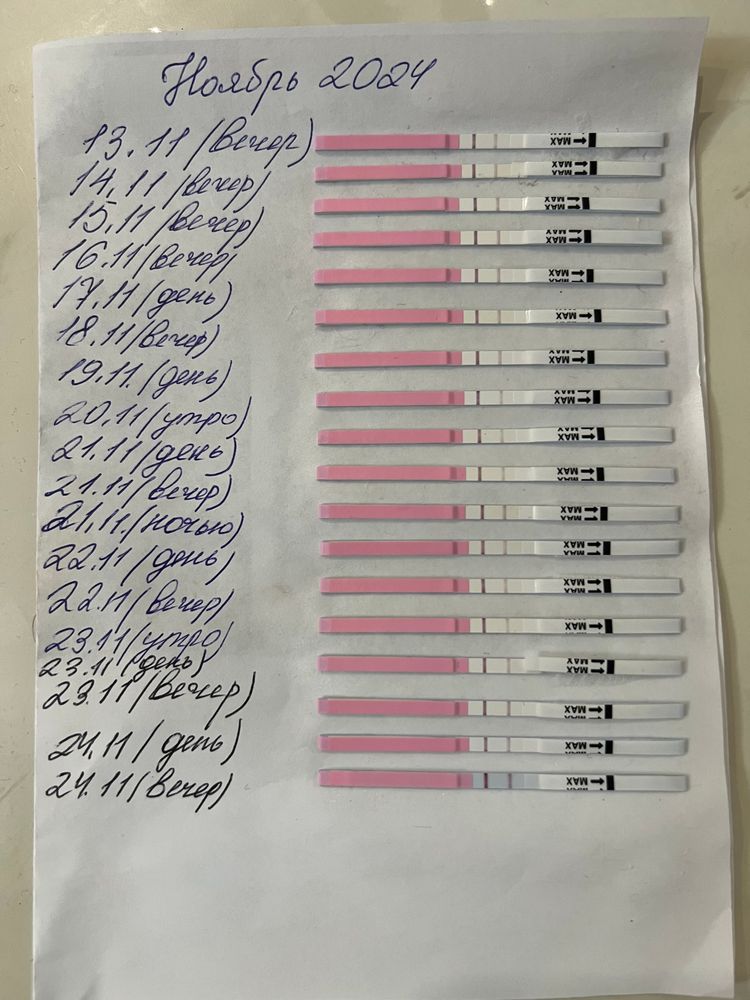 Ноябрь 2024
13.11 (вечер)
14.11 (вечер)
15.11 (вечер)
16.11 (вечер)
17.11 (день)
18.11 (вечер)
19.11. (день)
20.11 (утро)
21.11 (день)
21.11 (вечер)
21.11. (ночью)
22.11 (день)
22.11 (вечер)
23.11 (утро)
23.11 (день)
23.11 (вечер)
24.11 (день)
24.11 (вечер)
MAX
MAX
MAX
MAX
MAX
MAX
MAX
MAX
MAX
MAX
MAX
MAX
MAX
MAX
MAX
MAX
MAX
MAX